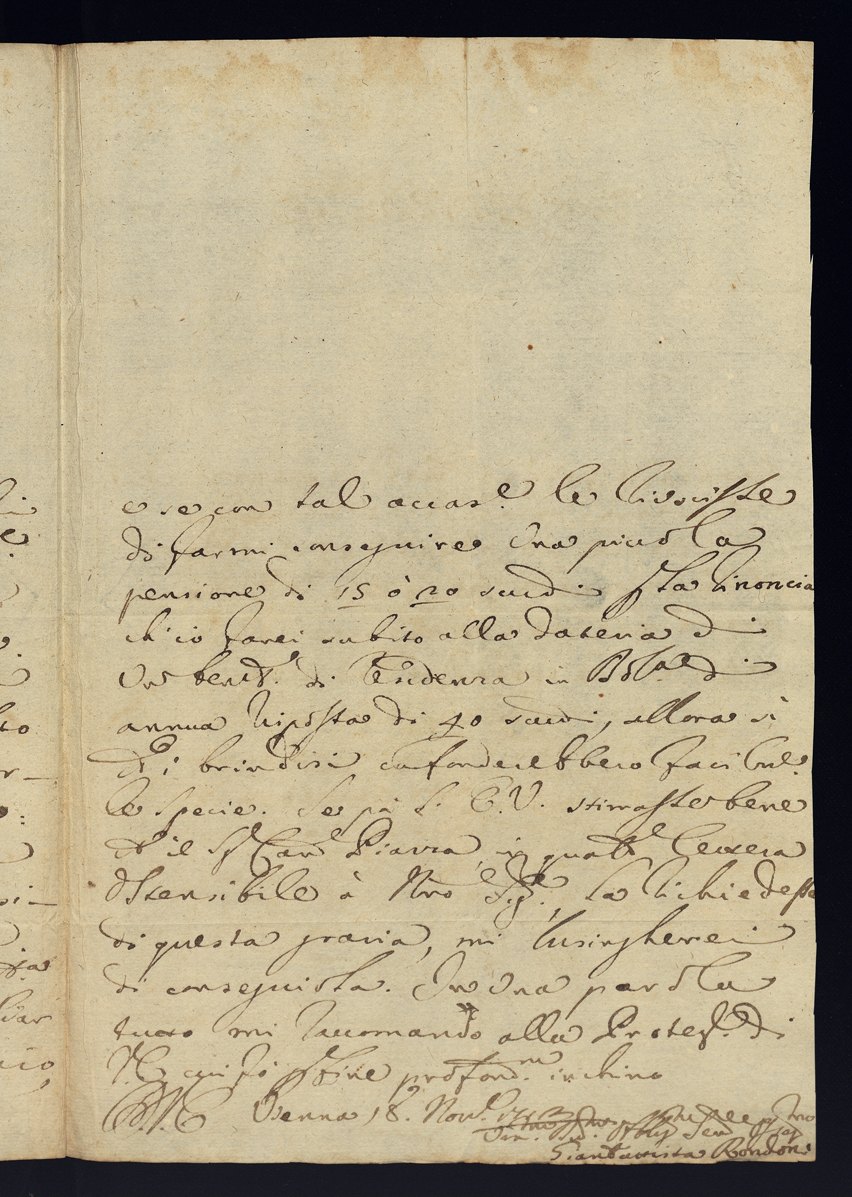 e se con tal occas.e le riuscisse
di farmi conseguire una piccola
pensione di 15 ò 20 scudi p la rinoncia
ch'io farei subito alla Dateria di
un benef.o di Residenza in Bol.a di
annua risposta di 40 scudi, allora sì
ch i brindisi confonderebbero facilm.e
le specie. Se poi l' E.V. stimasse bene
ch il Sig.r Card. Piazza, in qualch lettera
ostensibile à Nro Sig.re, la richiedesse
di questa grazia, mi lusingherei
di conseguirla. In una parola
tutto mi raccomando alla Protez.e di
V.E. cui fò p fine profond.m inchino
D.V.E. Vienna 18. Nov.e 1713
Giambattista Rondoni